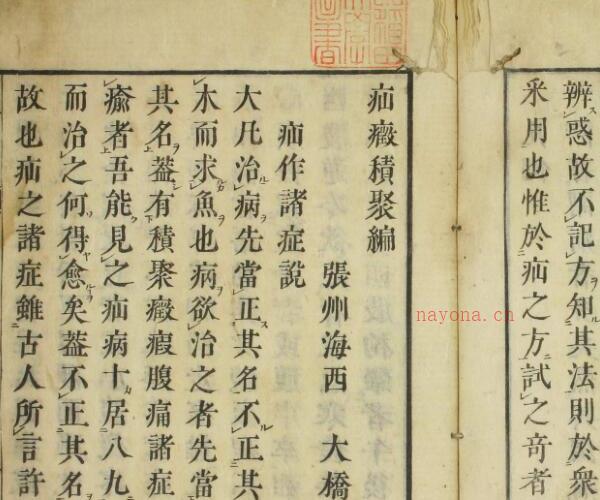 辨惑故不記方知其法則於衆
釆用也惟於疝之方試之奇者
疝癥積聚編
張州海西 大橋
疝作諸症說
大凡治病先當正其名不正其
木而求魚也病欲治之者先當
其名葢有積聚癥瘕腹痛諸症
瘉者吾能見之疝病十居八九
而治之何得愈矣葢不正其名
故也疝之諸症雖古人所言許
nayona.cn